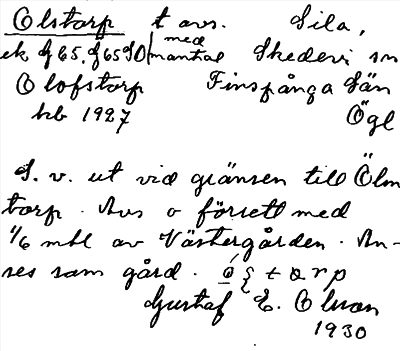 Olstorp t avs. Sila,
ek J65.J65SO med mantal Skedevi sn
Olofstorp Finspånga län
kb 1927 Ögl
S. v. ut vid gränsen till Ölm
torp. Avs o försett med
1/6 mtl av Västergården. An-
ses som gård.
Gustaf E. Olson
1930